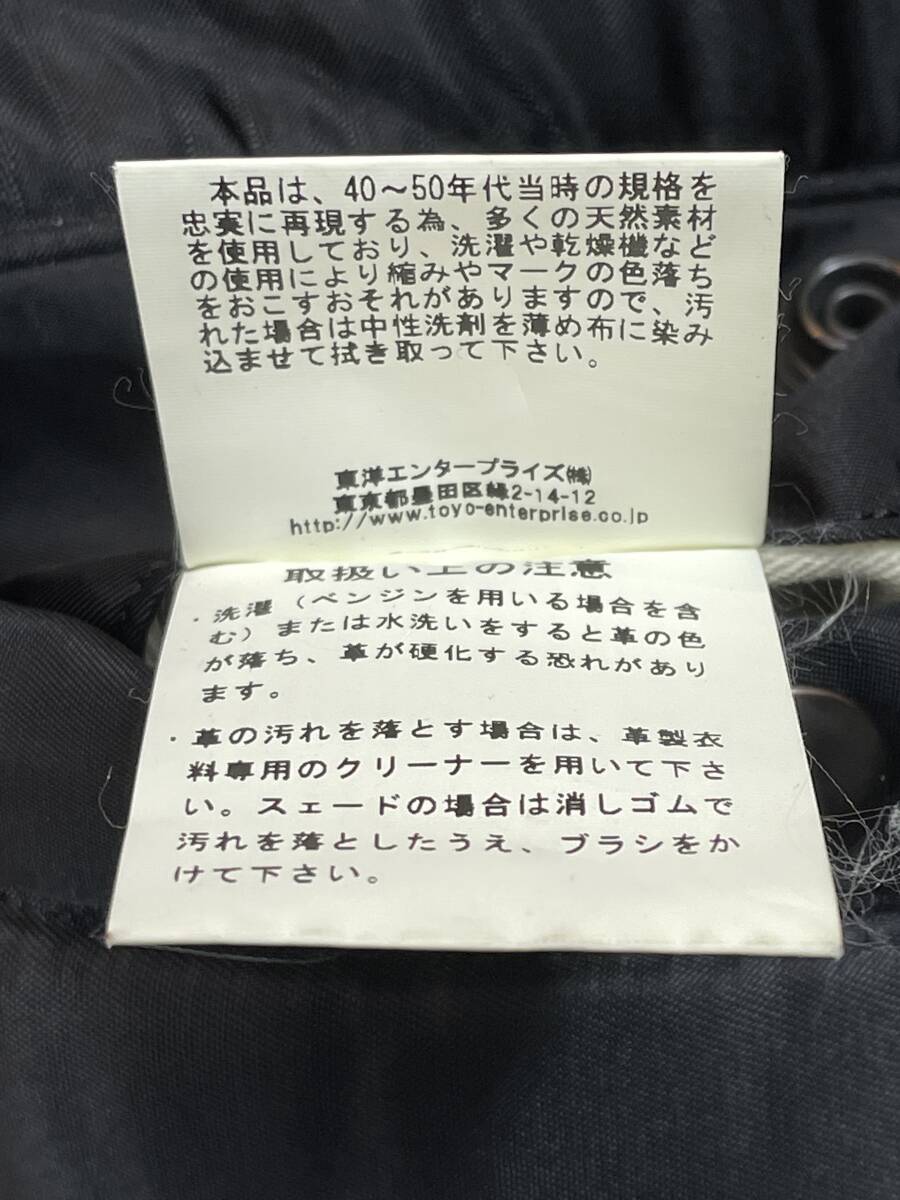 本品は、40～50年代当時の規格を
忠実に再現する為、多くの天然素材
を使用しており、洗濯や乾燥機など
の使用により縮みやマークの色落ち
をおこすおそれがありますので、汚
れた場合は中性洗剤を薄め布に染み
込ませて拭き取って下さい。
東洋エンタープライズ㈱
東京都墨田区緑2-14-12
http://www.toyo-enterprise.co.jp
取扱い上の注意
・洗濯（ベンジンを用いる場合を含
む）または水洗いをすると革の色
が落ち、革が硬化する恐れがあり
ます。
・革の汚れを落とす場合は、革製衣
料専用のクリーナーを用いて下さ
い。スェードの場合は消しゴムで
汚れを落としたうえ、ブラシをか
けて下さい。